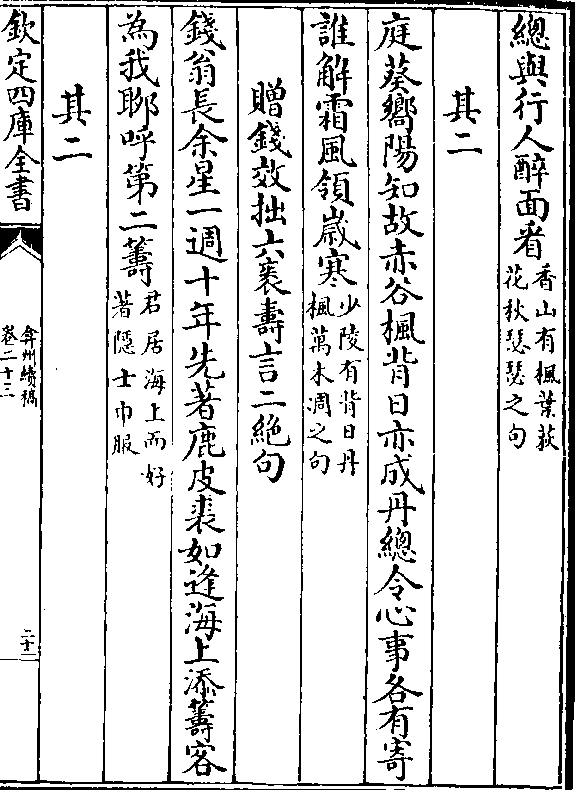 總與行人醉面看香山有楓葉荻花秋瑟瑟之句
其二
庭葵嚮陽知故赤谷楓背日亦成丹總令心事各有寄
誰解霜風領嵗寒少陵有背日丹楓萬木凋之句
贈錢效拙六袠夀言二絶句
錢翁長余星一週十年先著鹿皮裘如逢海上添籌客
為我聊呼第二籌君居海上而好著隱士巾服
其二
欽定四庫全書
弇州續稿
卷二十三
二十一